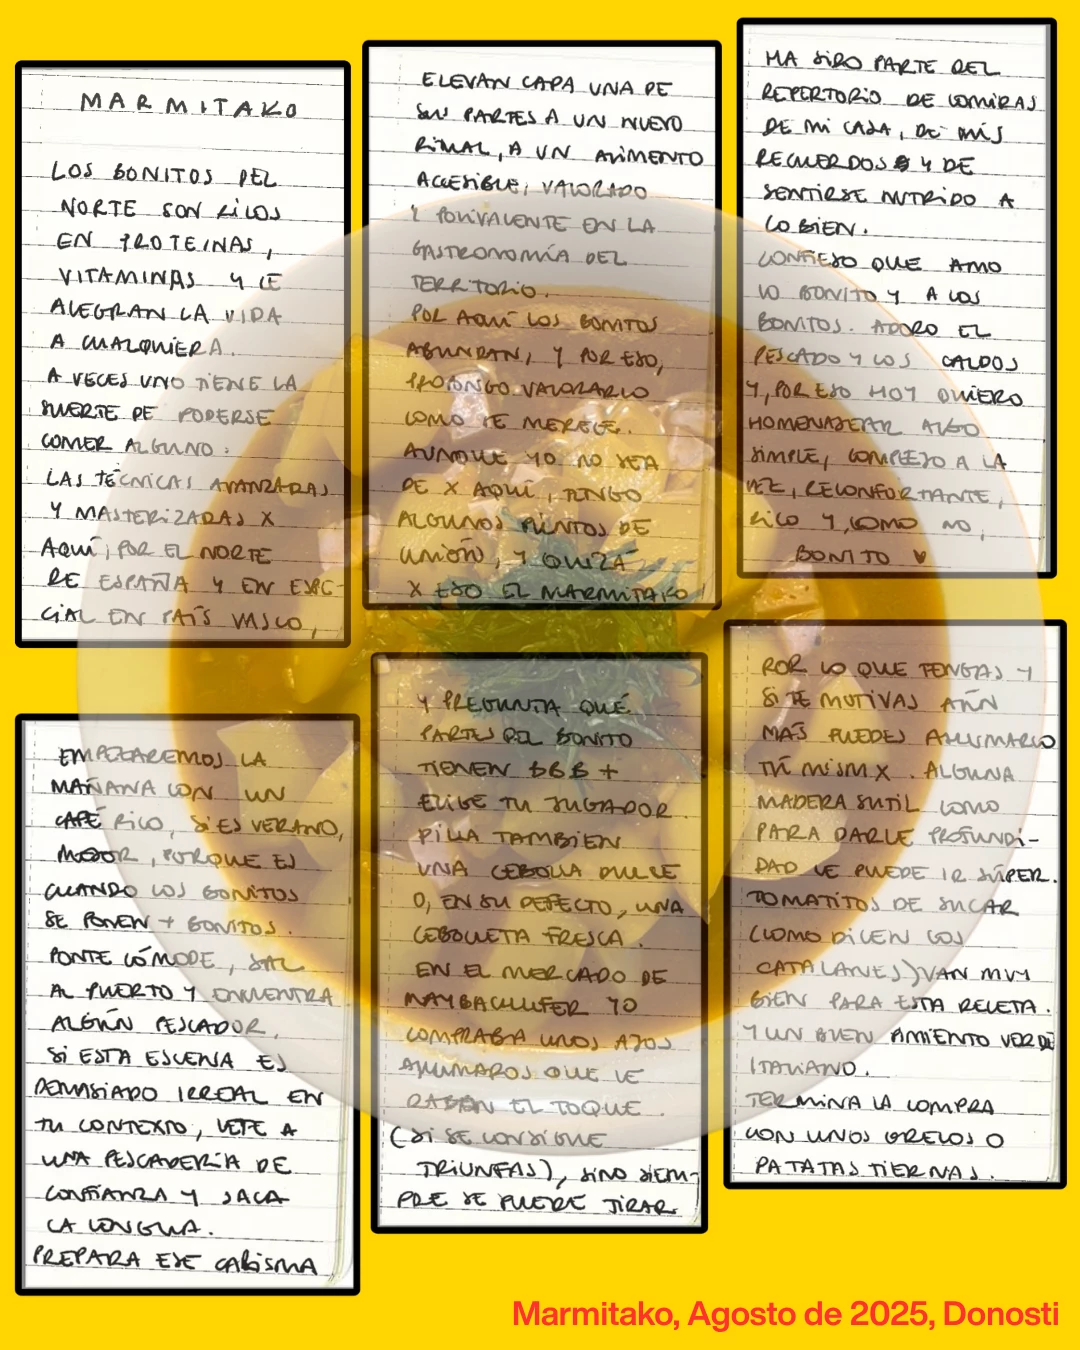 MARMITAKO
LOS BONITOS DEL
NORTE SON RICOS
EN PROTEINAS,
VITAMINAS Y LE
ALEGRAN LA VIDA
A CUALQUIERA.
A VECES UNO TIENE LA
SUERTE DE PODERSE
COMER ALGUNO:
LAS TÉCNICAS AVANZADAS
Y MASTERIZADAS X
AQUÍ, POR EL NORTE
DE ESPAÑA Y EN ESPE-
CIAL EN PAÍS VASCO,
ELEVAN CADA UNA DE
SUS PARTES A UN NUEVO
RITUAL, A UN ALIMENTO
ACCESIBLE, VALORADO
Y POLIVALENTE EN LA
GASTRONOMÍA DEL
TERRITORIO.
POR AQUÍ LOS BONITOS
ABUNDAN, Y POR ESO,
PROPONGO VALORARLO
COMO SE MERECE.
AUNQUE YO NO SEA
DE X AQUÍ, TENGO
ALGUNOS PUNTOS DE
UNIÓN, Y QUIZÁ
X ESO EL MARMITAKO
HA SIDO PARTE DEL
REPERTORIO DE COMIDAS
DE MI CASA, DE MIS
RECUERDOS Y DE
SENTIRSE NUTRIDO A
LO BIEN.
CONFIESO QUE AMO
LO BONITO Y A LOS
BONITOS. ADORO EL
PESCADO Y LOS CALDOS
Y, POR ESO HOY QUIERO
HOMENAJEAR ALGO
SIMPLE, COMPLEJO A LA
VEZ, RECONFORTANTE,
RICO Y, COMO NO,
BONITO ♥
EMPEZAREMOS LA
MAÑANA CON UN
CAFÉ RICO, SI ES VERANO,
MEJOR, PORQUE ES
CUANDO LOS BONITOS
SE PONEN + BONITOS.
PONTE CÓMODE, SAL
AL PUERTO Y ENCUENTRA
ALGÚN PESCADOR,
SI ESTA ESCENA ES
DEMASIADO IRREAL EN
TU CONTEXTO, VETE A
UNA PESCADERÍA DE
CONFIANZA Y SACA
LA LENGUA.
PREPARA ESE CARISMA
Y PREGUNTA QUÉ
PARTES DEL BONITO
TIENEN BBB +
ELIGE TU JUGADOR.
PILLA TAMBIEN
UNA CEBOLLA DULCE
O, EN SU DEFECTO, UNA
CEBOLLETA FRESCA.
EN EL MERCADO DE
MAYBACHUFER YO
COMPRABA UNOS AJOS
AHUMADOS QUE LE
DABAN EL TOQUE.
(SI SE CONSIGUE
TRIUNFAS), SINO SIEM-
PRE SE PUEDE TIRAR
POR LO QUE TENGAS Y
SI TE MOTIVAS AÚN
MÁS PUEDES AHUMARLO
TÚ MISMX. ALGUNA
MADERA SUTIL COMO
PARA DARLE PROFUNDI-
DAD LE PUEDE IR SÚPER.
TOMATITOS DE SUCAR
(COMO DICEN LOS
CATALANES) VAN MUY
BIEN PARA ESTA RECETA.
Y UN BUEN PIMIENTO VERDE
ITALIANO.
TERMINA LA COMPRA
CON UNOS GRELOS O
PATATAS TIERNAS.
Marmitako, Agosto de 2025, Donosti